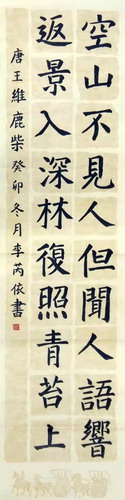 空山不見人但聞人語響
返景入深林復照青苔上
唐王維鹿柴癸卯冬月李芮依書